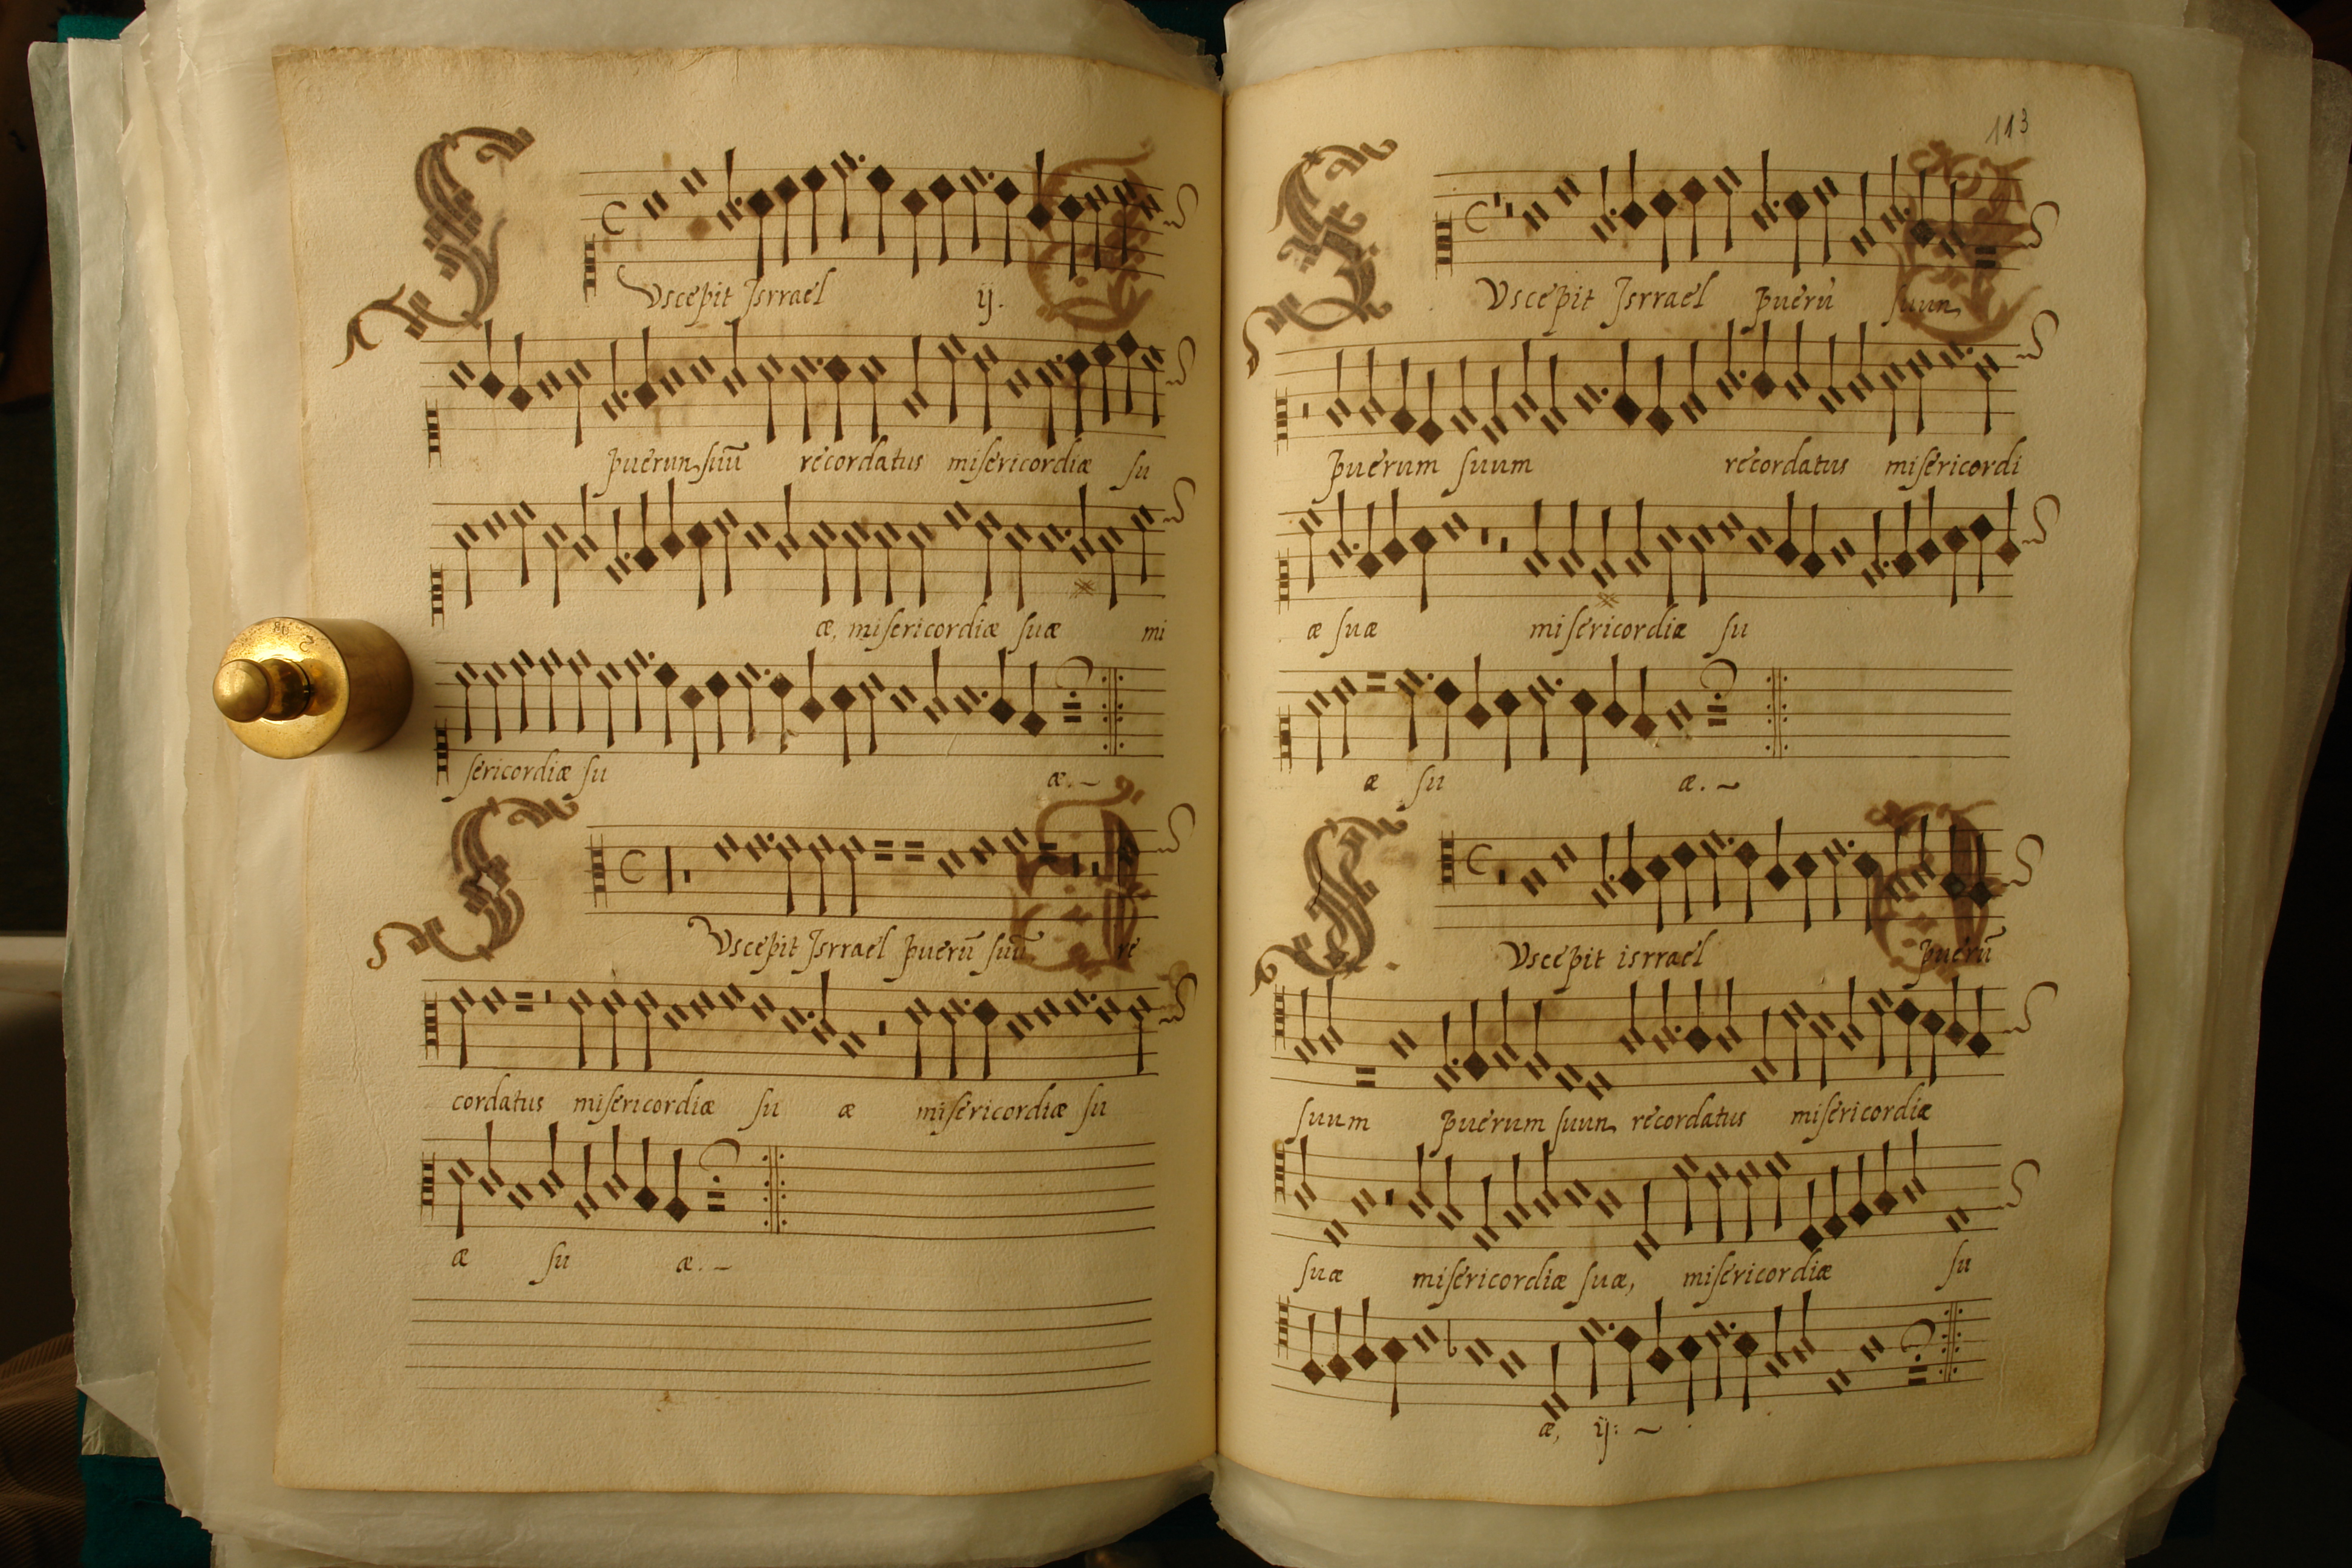 SVscepit Jsrrael ij.
puerun suū recordatus misericordiæ su
æ, misericordiæ suæ mi
sericordiæ su æ.~
SVscepit Jsrrael puerū suū re
cordatus misericordiæ su æ misericordiæ su
æ su æ.~
113
SVscepit Jsrrael puerū suun
puerum suum recordatus misericordi
æ suæ misericordiæ su
æ su æ.~
SVscepit israel puerū
suum puerum suun recordatus misericordiæ
suæ misericordiæ suæ, misericordiæ su
æ, ij:~